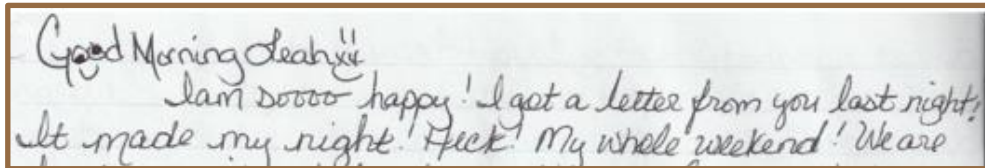 Good Morning Leah!!
I am soooo happy! I got a letter from you last night!
It made my night! Heck! My whole weekend! We are